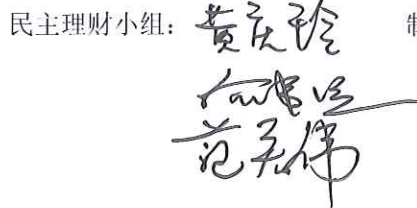 民主理财小组：黄庆玲 制
范天伟